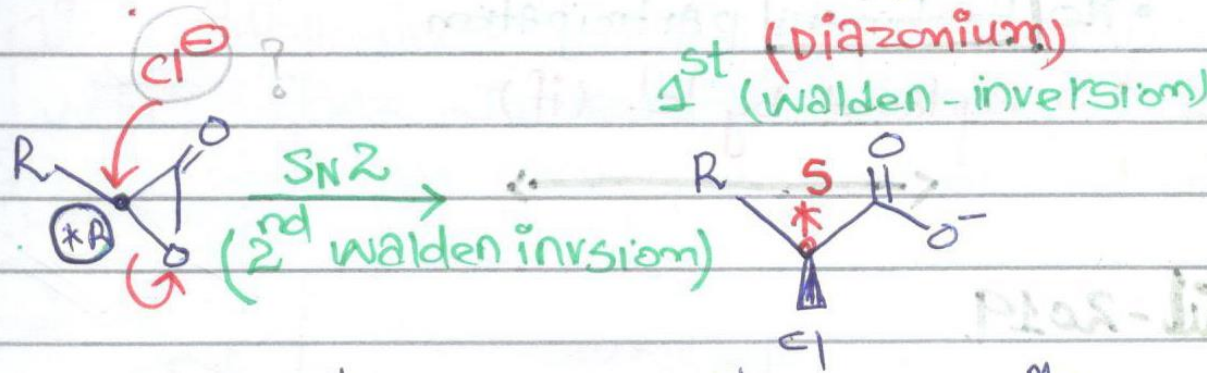 Cl⊖ ?
(Diazonium)
1st (walden-inversion)
R O
*R O
SN2
(2nd walden invsion)
R S O
* O⁻
Cl